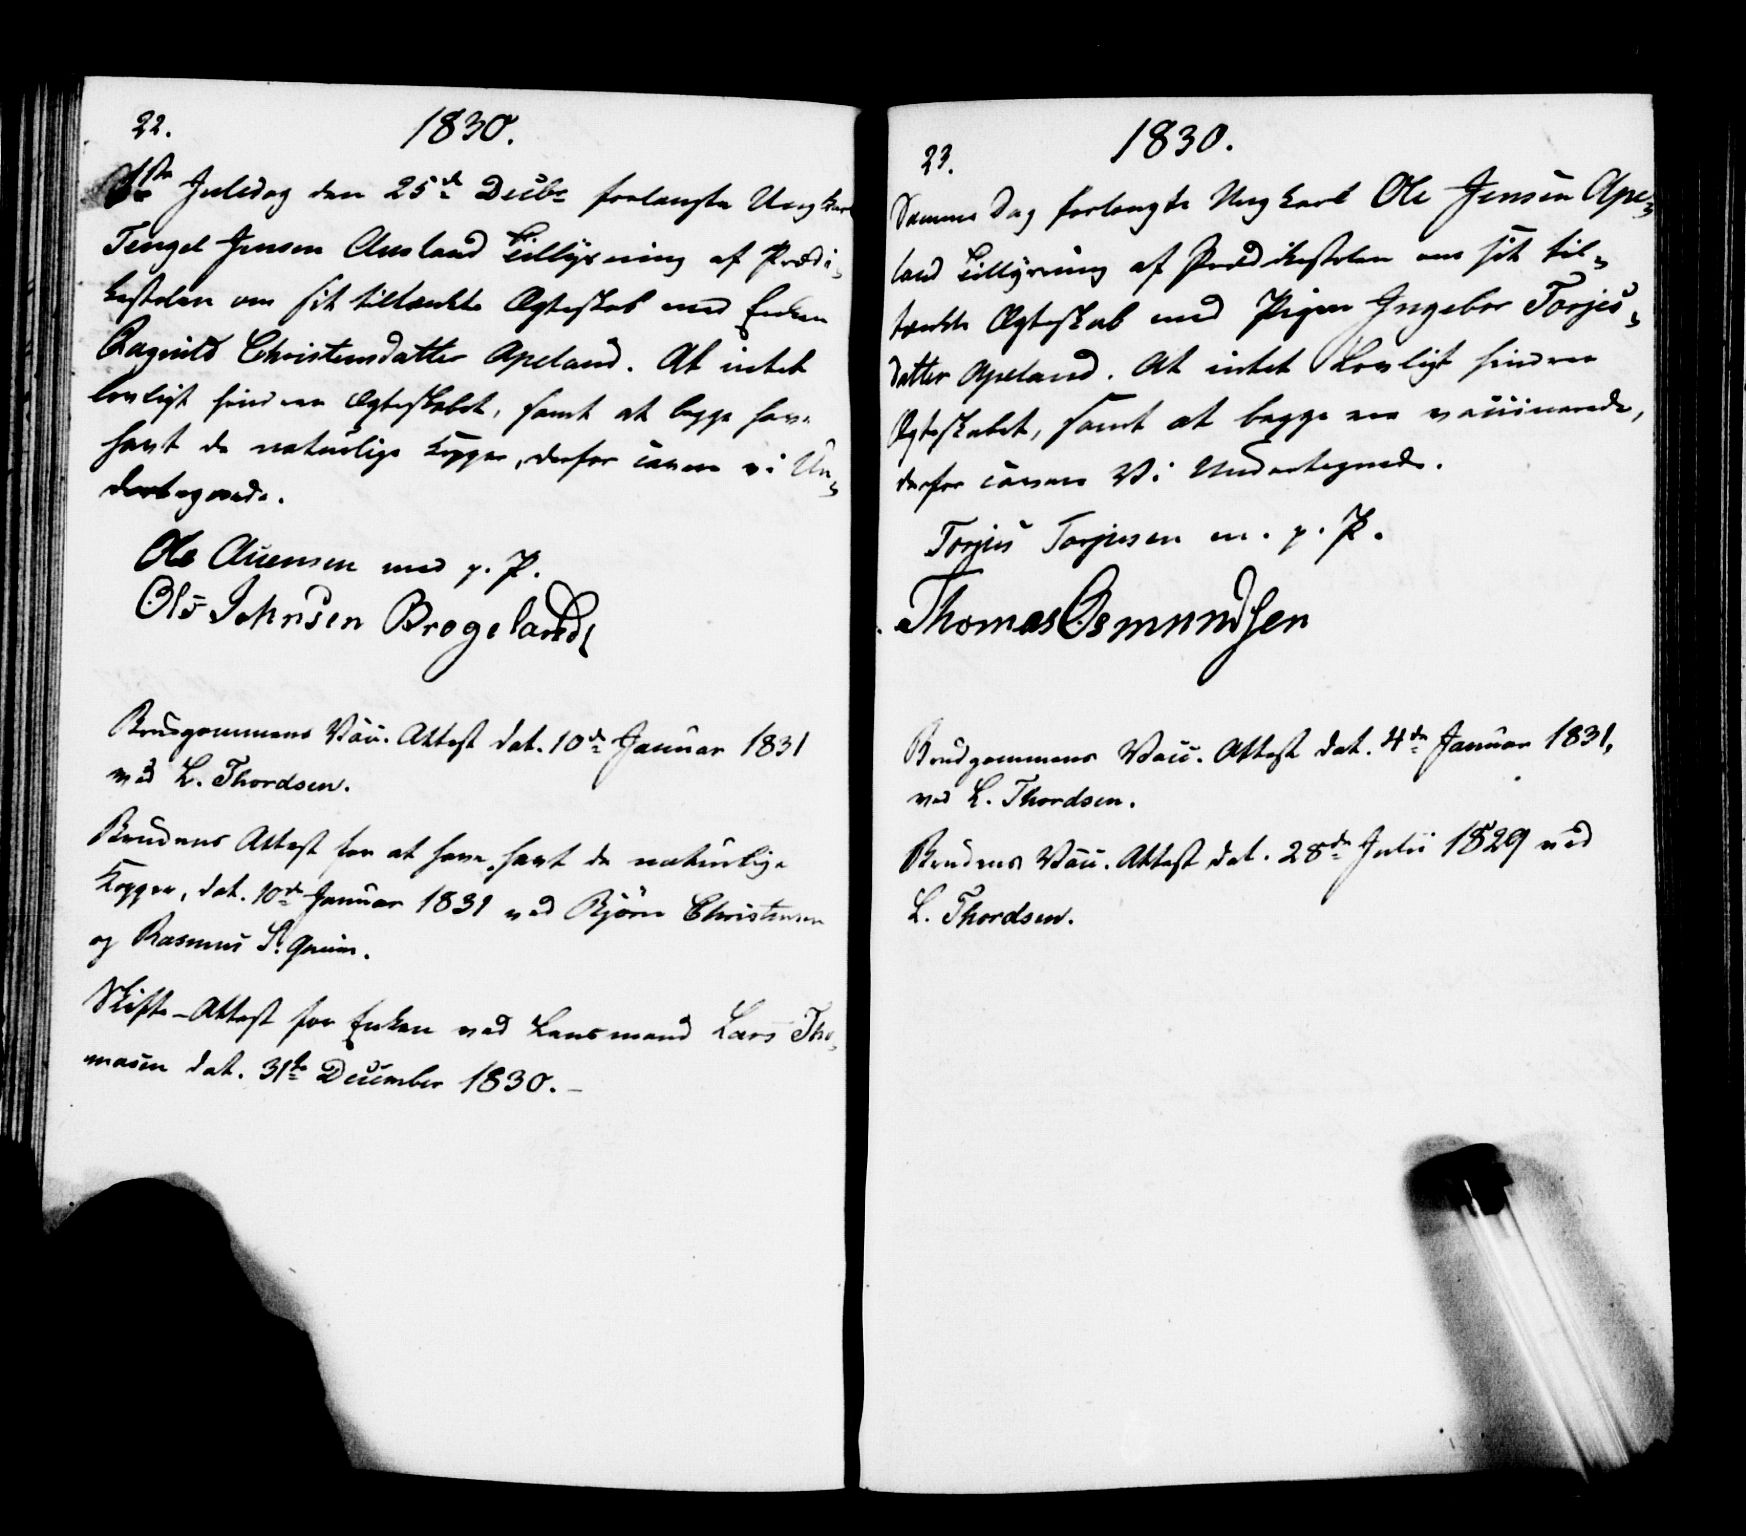 22.
1830.
1ste Juledag den 25de Decbr forlangte Ungkarl
Tengel Jensen Ausland Tillysning af Prædi-
kestolen om sit tiltænkte Ægteskab med Enken
Ragnild Christensdatter Apeland. At intet
lovligt hindrer Ægteskabet, samt at begge have
havt de naturlige Kopper, derfor cavere vi Un-
dertegnede.
Ole Auensen med p. P.
Ole Johnsen Brogeland
Brudgommens Vacc. Attest dat. 10de Januar 1831
ved L. Thordsen.
Brudens Attest for at have havt de naturlige
Kopper, dat. 10de Januar 1831 ved Bjørn Christensen
og Rasmus S.
Skifte-Attest for Enken ved Lensmand Lars Tho-
masen dat. 31te December 1830. -
23.
1830.
Samme Dag forlangte Ungkarl Ole Jensen Ape-
land Tillysning af Prædikestolen om sit til-
tænkte Ægteskab med Pigen Ingebor Torjus-
datter Apeland. At intet Lovligt hindrer
Ægteskabet, samt at begge ere vaccinerede,
derfor cavere Vi Undertegnede.
Torjus Torjusen m. p. P.
Thomas Osmundsen
Brudgommens Vacc. Attest dat. 4de Januar 1831,
ved L. Thordsen.
Brudens Vacc. Attest dat. 28de Julii 1829 ved
L. Thordsen.